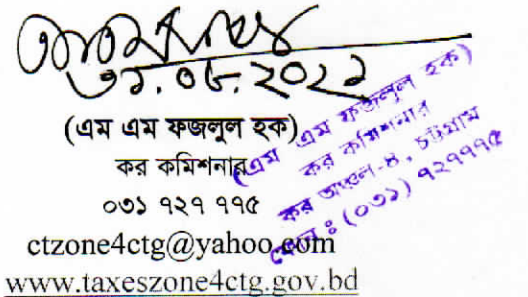 ৩১.০৮.২০২১
(এম এম ফজলুল হক)
কর কমিশনার
০৩১ ৭২৭ ৭৭৫
ctzone4ctg@yahoo.com
www.taxeszone4ctg.gov.bd
(এম এম ফজলুল হক)
কর কমিশনার
কর অঞ্চল-৪, চট্টগ্রাম
ফোন : (০৩১) ৭২৭৭৭৫